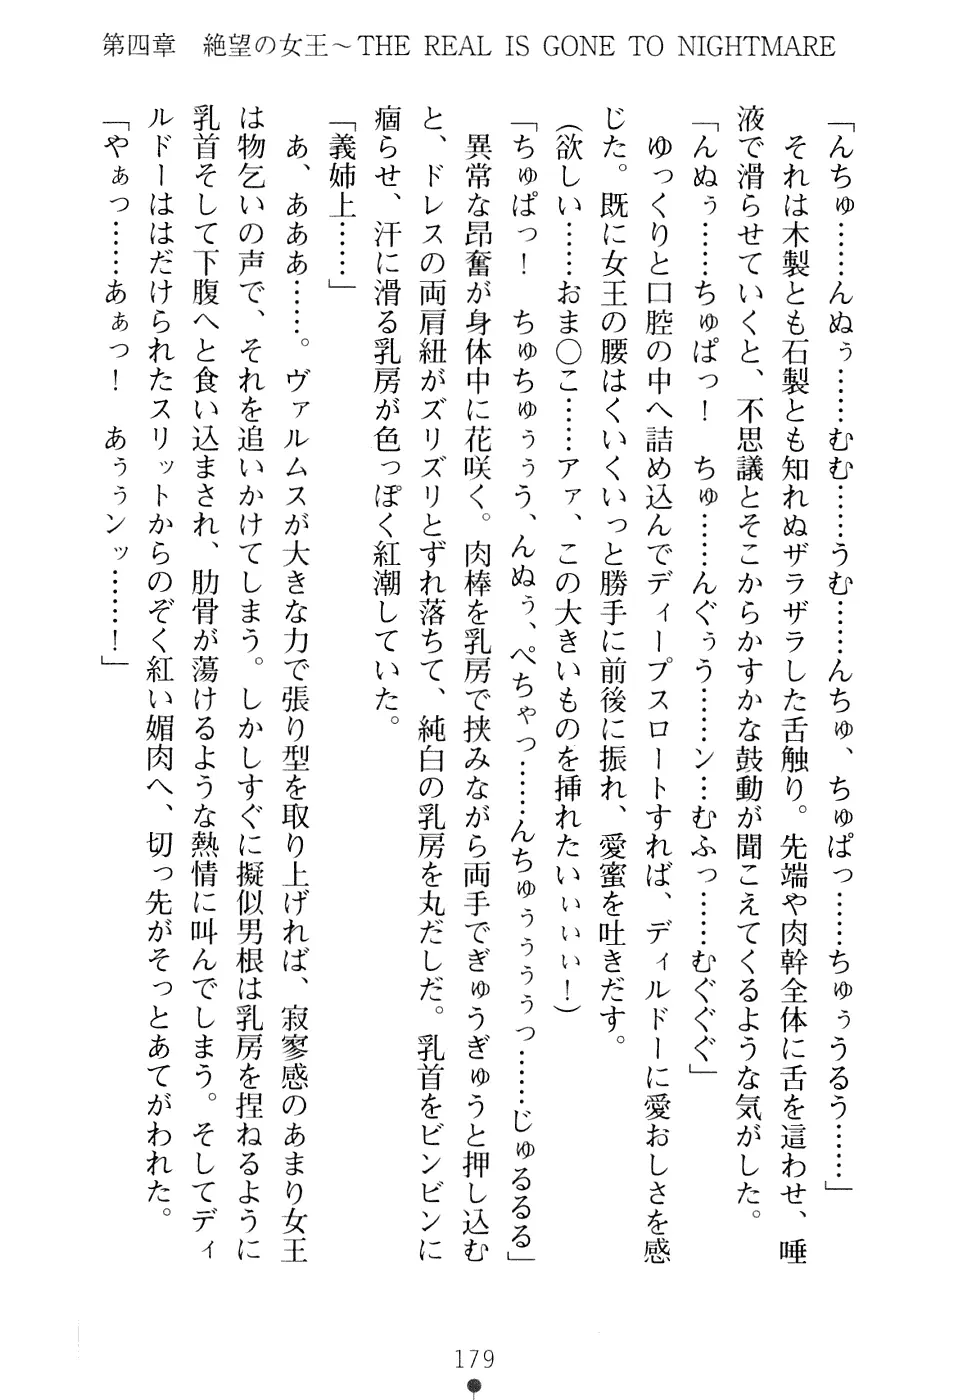 第四章　絶望の女王～THE REAL IS GONE TO NIGHTMARE
「んちゅ……んぬぅ……むむ……うむ……んちゅ、ちゅぱっ……ちゅぅうるう……」
　それは木製とも石製とも知れぬザラザラした舌触り。先端や肉幹全体に舌を這わせ、唾
液で滑らせていくと、不思議とそこからかすかな鼓動が聞こえてくるような気がした。
「んぬぅ……ちゅぱっ！　ちゅ……んぐぅう……ン…むふっ……むぐぐぐ」
　ゆっくりと口腔の中へ詰め込んでディープスロートすれば、ディルドーに愛おしさを感
じた。既に女王の腰はくいくいっと勝手に前後に振れ、愛蜜を吐きだす。
（欲しい……おま〇こ……アァ、この大きいものを挿れたいぃぃぃ！）
「ちゅぱっ！　ちゅちゅぅぅう、んぬぅ、ぺちゃっ……んちゅぅぅぅっ……じゅるるる」
　異常な昂奮が身体中に花咲く。肉棒を乳房で挟みながら両手でぎゅうぎゅうと押し込む
と、ドレスの両肩紐がズリズリとずれ落ちて、純白の乳房を丸だしだ。乳首をビンビンに
痼らせ、汗に滑る乳房が色っぽく紅潮していた。
「義姉上……」
　あ、あああ……。ヴァルムスが大きな力で張り型を取り上げれば、寂寥感のあまり女王
は物乞いの声で、それを追いかけてしまう。しかしすぐに擬似男根は乳房を捏ねるように
乳首そして下腹へと食い込まされ、肋骨が蕩けるような熱情に叫んでしまう。そしてディ
ルドーははだけられたスリットからのぞく紅い媚肉へ、切っ先がそっとあてがわれた。
「やぁっ……あぁっ！　あぅぅンッ……！」
179